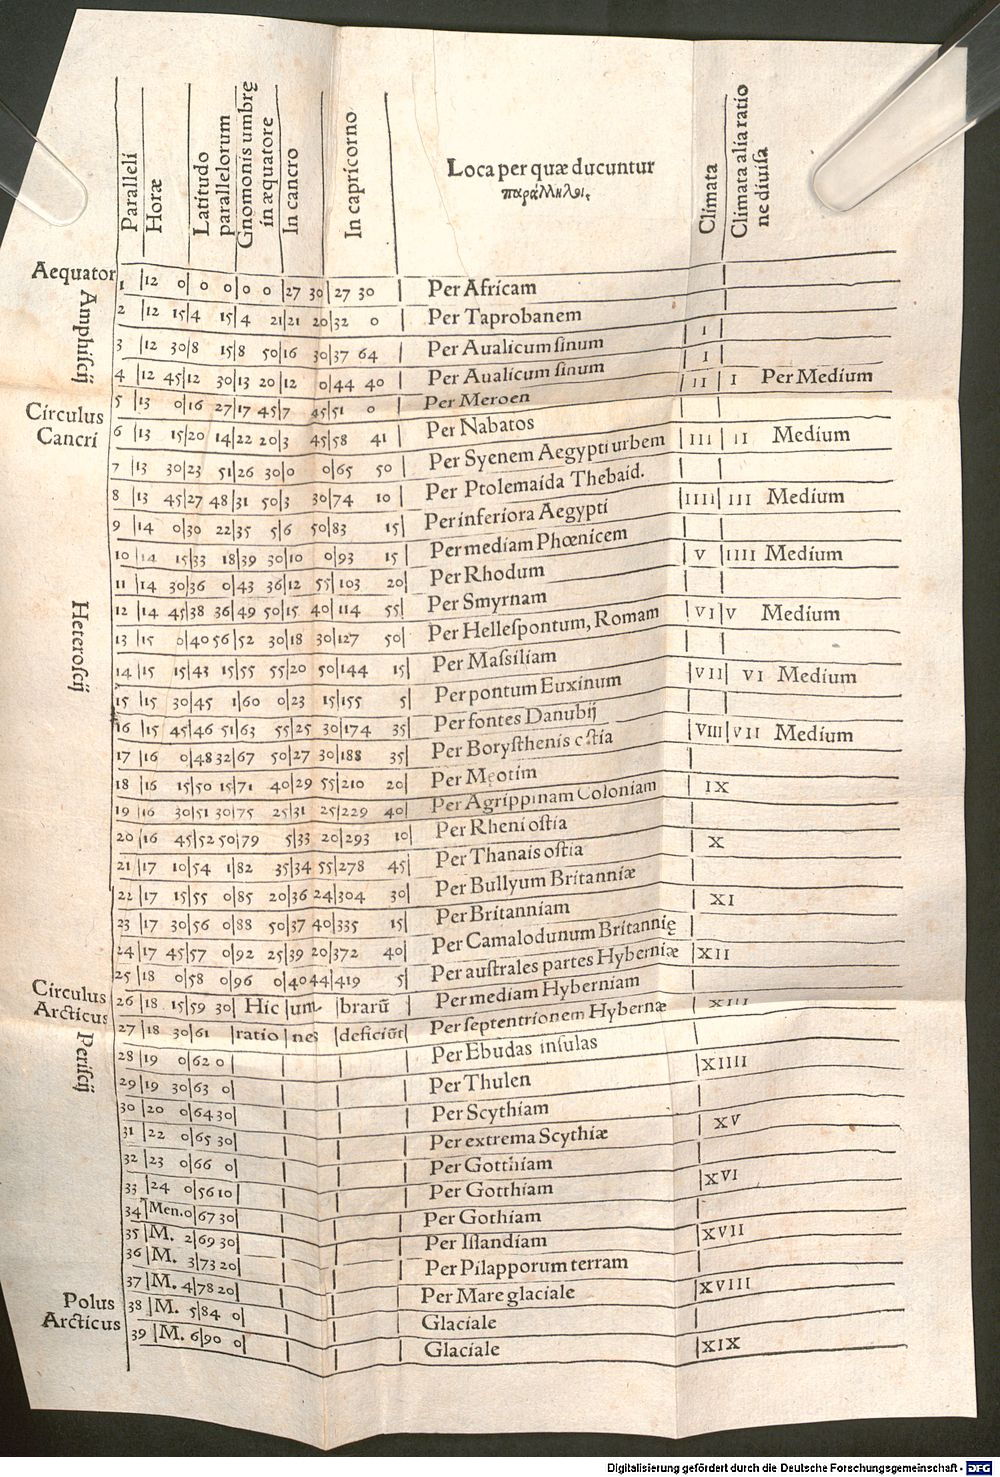 Paralleli
Horæ
Latitudo
parallelorum
Gnomonis umbrę
in æquatore
In cancro
In capricorno
Loca per quæ ducuntur
παράλληλοι.
Climata
Climata alia ratio
ne diuiſa
Aequator
Amphiſcij
Circulus
Cancri
Heteroſcij
Circulus
Arcticus
Periſcij
Polus
Arcticus
1 12 0 0 0 0 0 27 30 27 30 Per Africam
2 12 15 4 15 4 21 21 20 32 0 Per Taprobanem
3 12 30 8 15 8 50 16 30 37 64 Per Aualicum ſinum I
4 12 45 12 30 13 20 12 0 44 40 Per Aualicum ſinum I
5 13 0 16 27 17 45 7 45 51 0 Per Meroen II I Per Medium
6 13 15 20 14 22 20 3 45 58 41 Per Nabatos
7 13 30 23 51 26 30 0 0 65 50 Per Syenem Aegypti urbem III II Medium
8 13 45 27 48 31 50 3 30 74 10 Per Ptolemaida Thebaid.
9 14 0 30 22 35 5 6 50 83 15 Per inferiora Aegypti IIII III Medium
10 14 15 33 18 39 30 10 0 93 15 Per mediam Phœnicem
11 14 30 36 0 43 36 12 55 103 20 Per Rhodum V IIII Medium
12 14 45 38 36 49 50 15 40 114 55 Per Smyrnam
13 15 0 40 56 52 30 18 30 127 50 Per Helleſpontum, Romam VI V Medium
14 15 15 43 15 55 55 20 50 144 15 Per Maſsiliam
15 15 30 45 1 60 0 23 15 155 5 Per pontum Euxinum VII VI Medium
16 15 45 46 51 63 55 25 30 174 35 Per fontes Danubij
17 16 0 48 32 67 50 27 30 188 35 Per Boryſthenis oſtia VIII VII Medium
18 16 15 50 15 71 40 29 55 210 20 Per Męotim
19 16 30 51 30 75 25 31 25 229 40 Per Agrippinam Coloniam IX
20 16 45 52 50 79 5 33 20 293 10 Per Rheni oſtia
21 17 10 54 1 82 35 34 55 278 45 Per Thanais oſtia X
22 17 15 55 0 85 20 36 24 304 30 Per Bullyum Britanniæ
23 17 30 56 0 88 50 37 40 335 15 Per Britanniam XI
24 17 45 57 0 92 25 39 20 372 40 Per Camalodunum Britannię
25 18 0 58 0 96 0 40 44 419 5 Per auſtrales partes Hyberniæ XII
26 18 15 59 30 Hic um brarū Per mediam Hyberniam
27 18 30 61 ratio nes deficiūt Per ſeptentrionem Hybernæ XIII
28 19 0 62 0 Per Ebudas inſulas
29 19 30 63 0 Per Thulen XIIII
30 20 0 64 30 Per Scythiam
31 22 0 65 30 Per extrema Scythiæ XV
32 23 0 66 0 Per Gotthiam
33 24 0 56 10 Per Gotthiam XVI
34 Men. 0 67 30 Per Gothiam
35 M. 2 69 30 Per Iſlandiam XVII
36 M. 3 73 20 Per Pilapporum terram
37 M. 4 78 20 Per Mare glaciale XVIII
38 M. 5 84 0 Glaciale
39 M. 6 90 0 Glaciale XIX
Digitalisierung gefördert durch die Deutsche Forschungsgemeinschaft - DFG